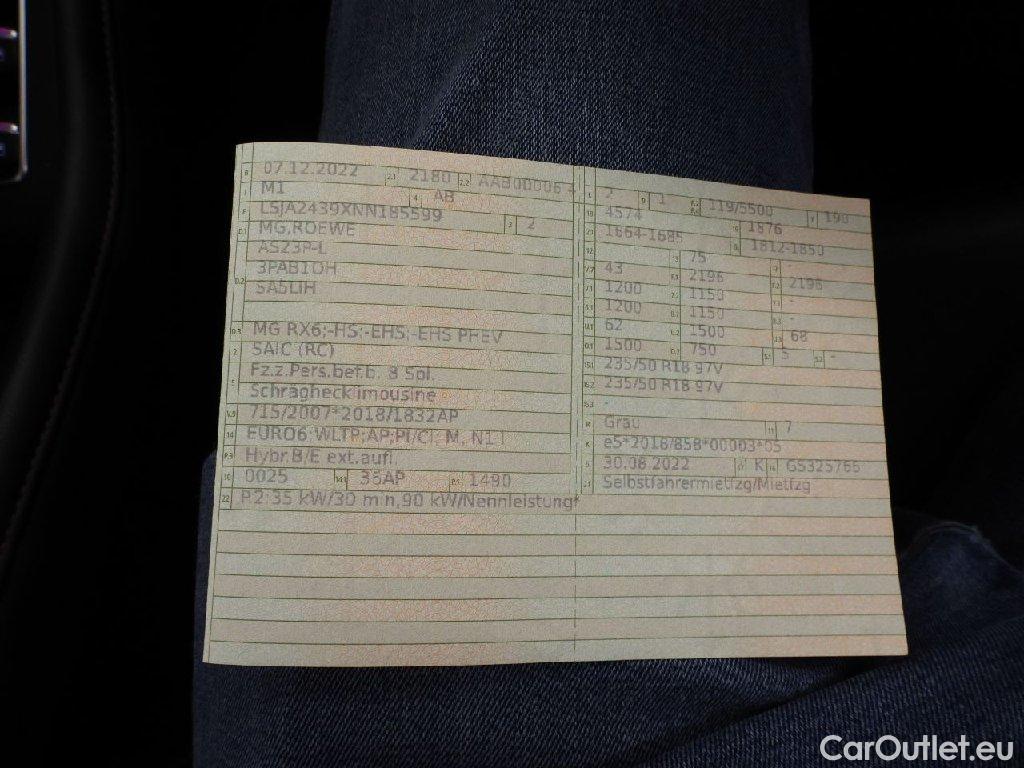 B 07.12.2022 2.1 2180 2.2 AAB00006 4
J M1 4 AB
E LSJA2439XNN185599 3 2
D.1 MG,ROEWE
AS23P-L
D.2 3PAB1OH
SA5LIH
D.3 MG RX6;-HS;-EHS;-EHS PHEV
2 SAIC (RC)
5 Fz.z.Pers.bef.b. 8 Spl.
Schräghecklimousine
V.9 715/2007*2018/1832AP
14 EURO6;WLTP;AP;PI/CI; M, N1 I
P.3 Hybr.B/E ext.aufl.
10 0025 14.1 36AP P.1 1490
22 P.2:35 kW/30 min,90 kW/Nennleistung*
L 2 9 1 P.2 P.4 119/5500 T 190
18 4574 19 1876
20 1664-1685 G 1812-1850
12 - 13 75 Q -
V.7 43 F.1 2196 F.2 2196
7.1 1200 7.2 1150 7.3 -
8.1 1200 8.2 1150 8.3 -
U.1 62 U.2 1500 U.3 68
O.1 1500 O.2 750 S.1 5 S.2 -
15.1 235/50 R18 97V
15.2 235/50 R18 97V
15.3 -
R Grau 11 7
K e5*2018/858*00003*05
6 30.08.2022 17 K 16 GS325765
21 Selbstfahrermietfzg/Mietfzg
CarOutlet.eu